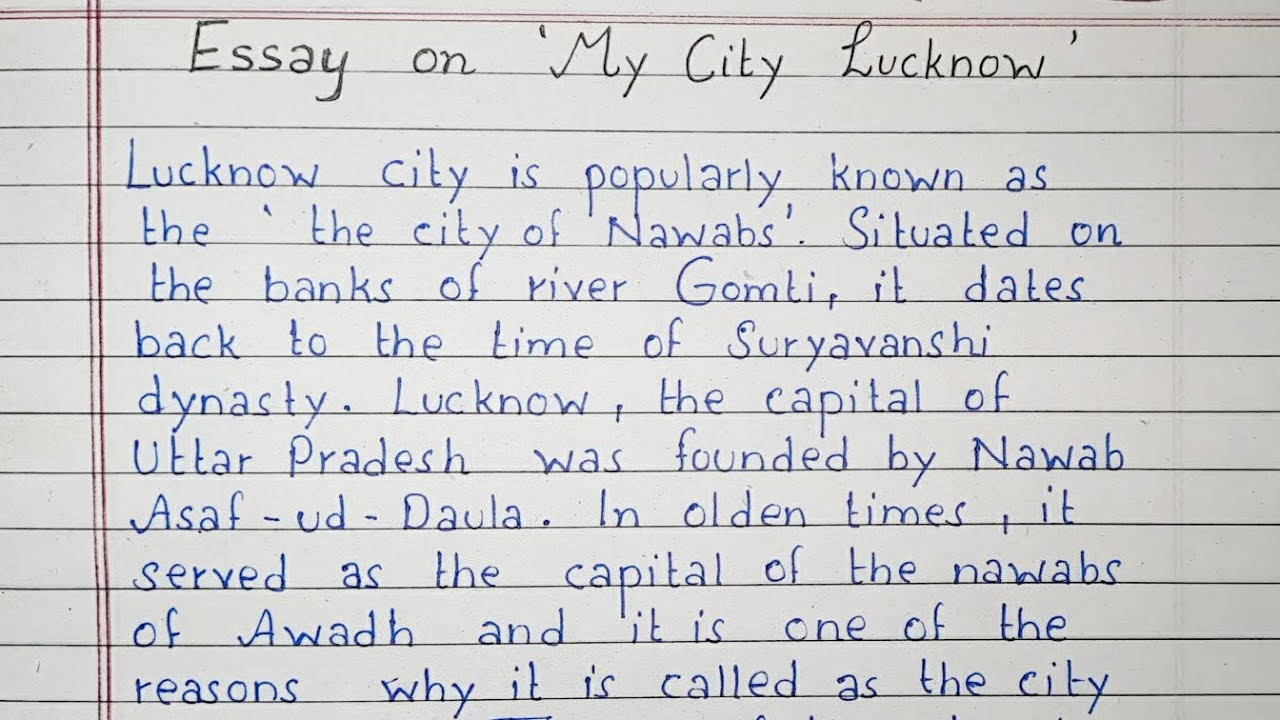 Essay on 'My City Lucknow'
Lucknow city is popularly known as
the ' the city of Nawabs'. Situated on
the banks of river Gomti, it dates
back to the time of Suryavanshi
dynasty. Lucknow, the capital of
Uttar Pradesh was founded by Nawab
Asaf-ud-Daula. In olden times, it
served as the capital of the nawabs
of Awadh and it is one of the
reasons why it is called as the city